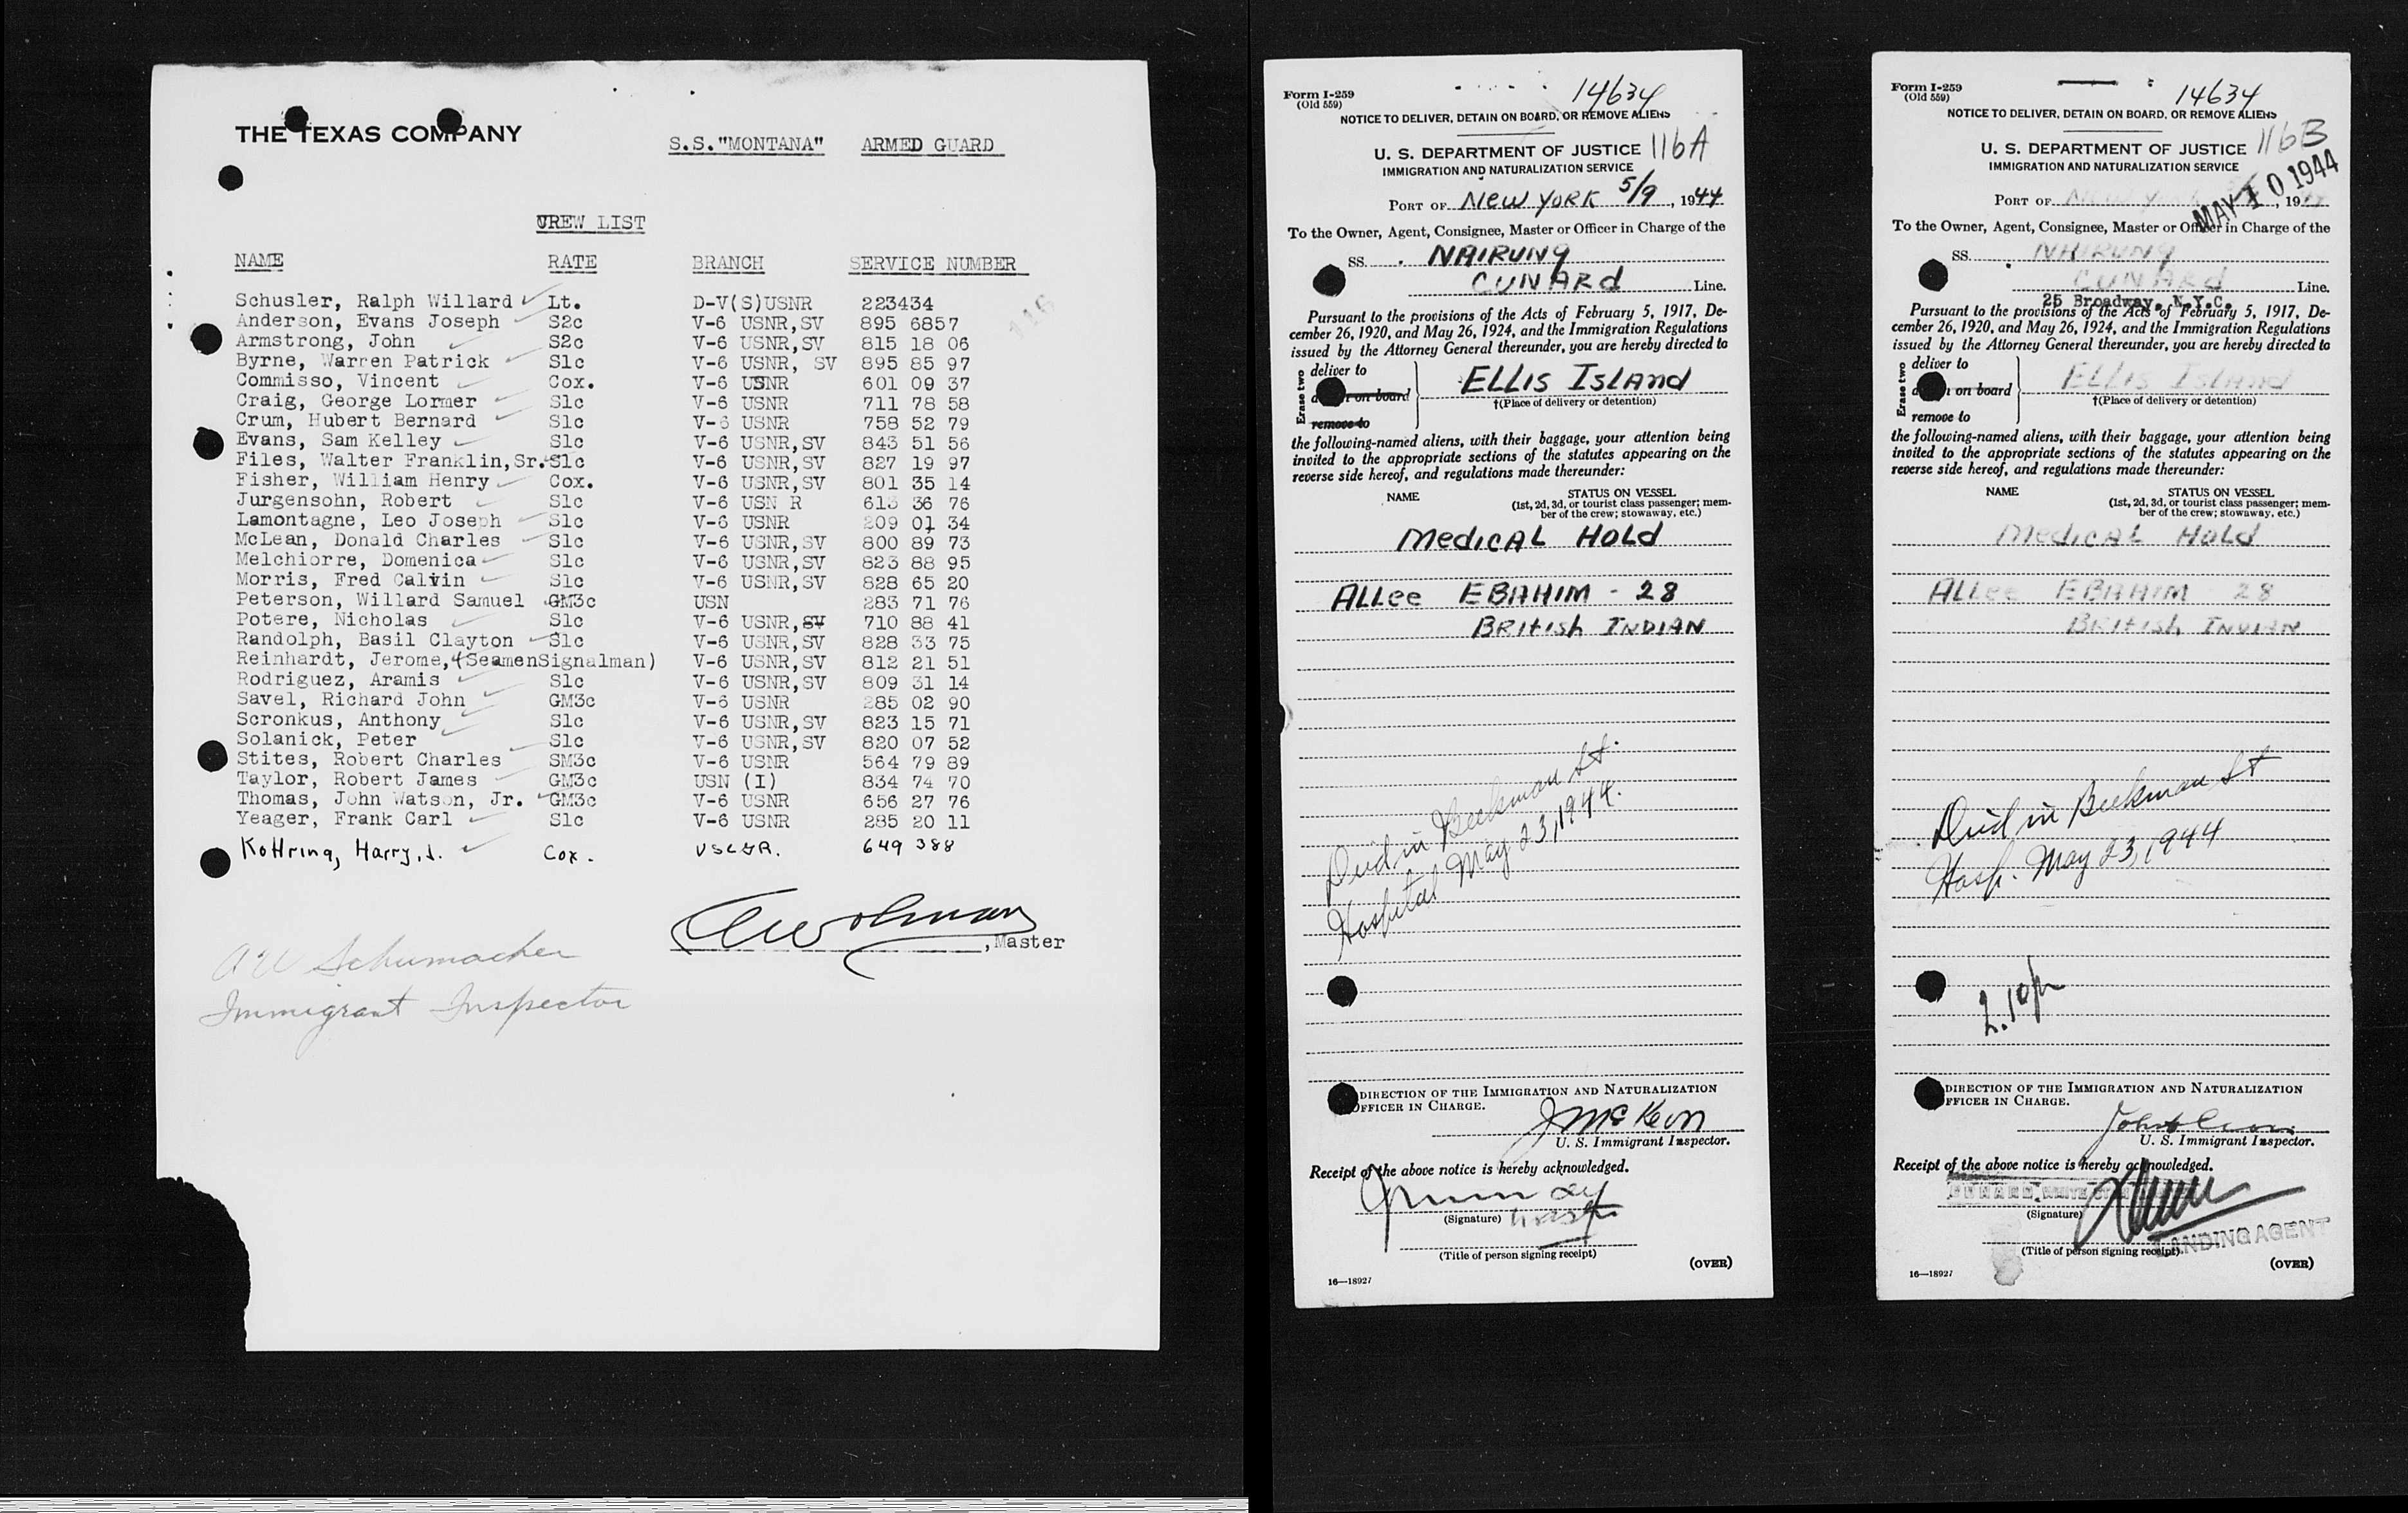 THE TEXAS COMPANY
S.S."MONTANA" ARMED GUARD
CREW LIST
NAME RATE BRANCH SERVICE NUMBER
116
Schusler, Ralph Willard Lt. D-V(S)USNR 223434
Anderson, Evans Joseph S2c V-6 USNR,SV 895 6857
Armstrong, John S2c V-6 USNR,SV 815 18 06
Byrne, Warren Patrick S1c V-6 USNR, SV 895 85 97
Commisso, Vincent Cox. V-6 USNR 601 09 37
Craig, George Lormer S1c V-6 USNR 711 78 58
Crum, Hubert Bernard S1c V-6 USNR 758 52 79
Evans, Sam Kelley S1c V-6 USNR,SV 843 51 56
Files, Walter Franklin,Sr. S1c V-6 USNR,SV 827 19 97
Fisher, William Henry Cox. V-6 USNR,SV 801 35 14
Jurgensohn, Robert S1c V-6 USN R 613 36 76
Lamontagne, Leo Joseph S1c V-6 USNR 209 01 34
McLean, Donald Charles S1c V-6 USNR,SV 800 89 73
Melchiorre, Domenica S1c V-6 USNR,SV 823 88 95
Morris, Fred Calvin S1c V-6 USNR,SV 828 65 20
Peterson, Willard Samuel GM3c USN 283 71 76
Potere, Nicholas S1c V-6 USNR,SV 710 88 41
Randolph, Basil Clayton S1c V-6 USNR,SV 828 33 75
Reinhardt, Jerome,(SeamenSignalman) V-6 USNR,SV 812 21 51
Rodriguez, Aramis S1c V-6 USNR,SV 809 31 14
Savel, Richard John GM3c V-6 USNR 285 02 90
Scronkus, Anthony S1c V-6 USNR,SV 823 15 71
Solanick, Peter S1c V-6 USNR,SV 820 07 52
Stites, Robert Charles SM3c V-6 USNR 564 79 89
Taylor, Robert James GM3c USN (I) 834 74 70
Thomas, John Watson, Jr. GM3c V-6 USNR 656 27 76
Yeager, Frank Carl S1c V-6 USNR 285 20 11
Kottring, Harry, J. Cox. USCGR. 649 388
,Master
A W Schumacher
Immigrant Inspector
Form I-259
(Old 559)
14634
NOTICE TO DELIVER, DETAIN ON BOARD, OR REMOVE ALIENS
U. S. DEPARTMENT OF JUSTICE 116A
IMMIGRATION AND NATURALIZATION SERVICE
PORT OF New York 5/9, 1944
To the Owner, Agent, Consignee, Master or Officer in Charge of the
SS. NAIRUNG
CUNARD Line.
Pursuant to the provisions of the Acts of February 5, 1917, De-
cember 26, 1920, and May 26, 1924, and the Immigration Regulations
issued by the Attorney General thereunder, you are hereby directed to
Erase two
deliver to
on board
remove to
ELLIS ISLAND
†(Place of delivery or detention)
the following-named aliens, with their baggage, your attention being
invited to the appropriate sections of the statutes appearing on the
reverse side hereof, and regulations made thereunder:
NAME STATUS ON VESSEL
(1st, 2d, 3d, or tourist class passenger; mem-
ber of the crew; stowaway, etc.)
MEDICAL HOLD
ALLEE EBAHIM - 28
BRITISH INDIAN
Died in Beekman St.
Hospital May 23, 1944.
DIRECTION OF THE IMMIGRATION AND NATURALIZATION
OFFICER IN CHARGE.
J McKeon
U. S. Immigrant Inspector.
Receipt of the above notice is hereby acknowledged.
(Signature)
(Title of person signing receipt)
(OVER)
16—18927
Form I-259
(Old 559)
14634
NOTICE TO DELIVER, DETAIN ON BOARD, OR REMOVE ALIENS
U. S. DEPARTMENT OF JUSTICE 116B
IMMIGRATION AND NATURALIZATION SERVICE
MAY 10 1944
PORT OF New York, 19
To the Owner, Agent, Consignee, Master or Officer in Charge of the
SS. NAIRUNG
CUNARD Line.
25 Broadway, N.Y.C.
Pursuant to the provisions of the Acts of February 5, 1917, De-
cember 26, 1920, and May 26, 1924, and the Immigration Regulations
issued by the Attorney General thereunder, you are hereby directed to
Erase two
deliver to
on board
remove to
ELLIS ISLAND
†(Place of delivery or detention)
the following-named aliens, with their baggage, your attention being
invited to the appropriate sections of the statutes appearing on the
reverse side hereof, and regulations made thereunder:
NAME STATUS ON VESSEL
(1st, 2d, 3d, or tourist class passenger; mem-
ber of the crew; stowaway, etc.)
MEDICAL HOLD
ALLEE EBAHIM 28
BRITISH INDIAN
Died in Beekman St
Hosp. May 23, 1944
2.10p
DIRECTION OF THE IMMIGRATION AND NATURALIZATION
OFFICER IN CHARGE.
U. S. Immigrant Inspector.
Receipt of the above notice is hereby acknowledged.
CUNARD WHITE STAR
(Signature)
LANDING AGENT
(Title of person signing receipt)
(OVER)
16—18927